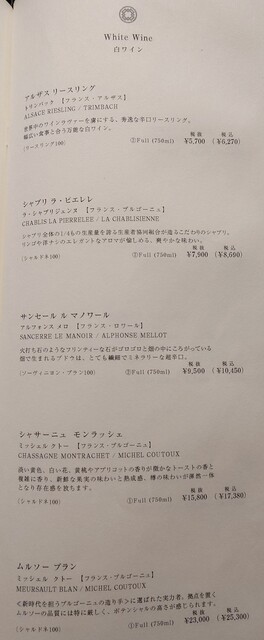 White Wine
白ワイン
アルザス リースリング
トリンバック 【フランス・アルザス】
ALSACE RIESLING / TRIMBACH
世界中のワインラヴァーを虜にする、秀逸な辛口リースリング。
幅広い食事と合う万能な白ワイン。
税抜 税込
(リースリング100) ①Full (750ml) ¥5,700 (¥6,270)
シャブリ ラ・ピエレレ
ラ・シャブリジェンヌ 【フランス・ブルゴーニュ】
CHABLIS LA PIERRELEE / LA CHABLISIENNE
シャブリ全体の1/4もの生産量を誇る生産者協同組合が造るこだわりのシャブリ。
リンゴや洋ナシのエレガントなアロマが愉しめる、爽やかな味わい。
税抜 税込
(シャルドネ100) ①Full (750ml) ¥7,900 (¥8,690)
サンセール ル マノワール
アルフォンス メロ 【フランス・ロワール】
SANCERRE LE MANOIR / ALPHONSE MELLOT
火打ち石のようなフリンティーな石がゴロゴロと畑の中にころがっている
畑で生まれるブドウは、とても繊細でミネラリーな超辛口。
税抜 税込
(ソーヴィニヨン・ブラン100) ①Full (750ml) ¥9,500 (¥10,450)
シャサーニュ モンラッシェ
ミッシェル クトー 【フランス・ブルゴーニュ】
CHASSAGNE MONTRACHET / MICHEL COUTOUX
淡い黄色、白い花、黄桃やアプリコットの香りが微かなトーストの香と
複雑に香り、新鮮な果実の味わいと熟成感、樽の味わいが渾然一体
となり存在感を放ちます。
税抜 税込
(シャルドネ100) ①Full (750ml) ¥15,800 (¥17,380)
ムルソー ブラン
ミッシェル クトー 【フランス・ブルゴーニュ】
MEURSAULT BLAN / MICHEL COUTOUX
≪新時代を担うブルゴーニュの造り手≫に選ばれた実力者。拠点を置く
ムルソーの品質には特に厳しく、ポテンシャルの高さが感じられます。
税抜 税込
(シャルドネ100) ①Full (750ml) ¥23,000 (¥25,300)